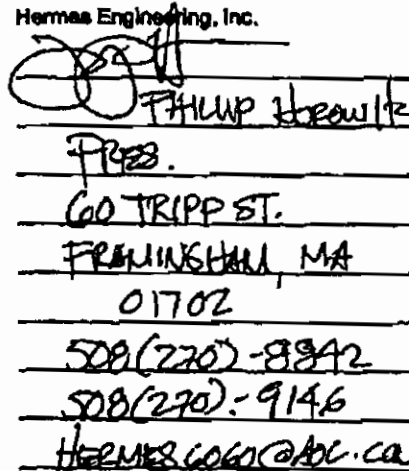 Hermes Engineering, Inc.
PHILLIP HOROWITZ
PRES.
60 TRIPP ST.
FRAMINGHAM, MA
01702
508(270)-8842
508(270)-9146
HERMES6060@AOL.CO